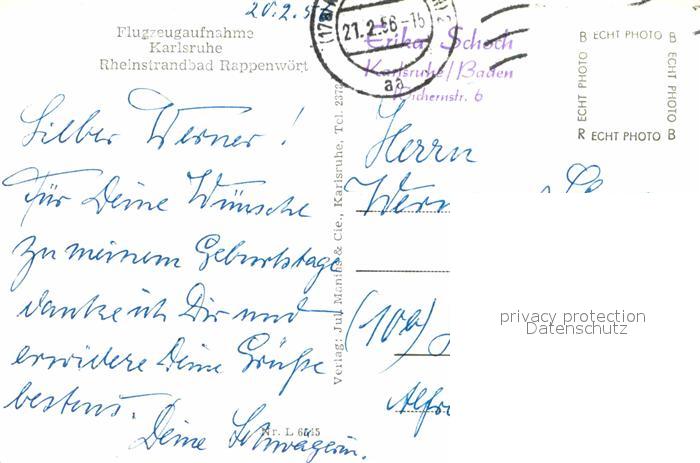 20.2.5
Flugzeugaufnahme
Karlsruhe
Rheinstrandbad Rappenwört
21.2.56-15
(17a)
aa
Erika Schoch
Karlsruhe/Baden
Wichernstr. 6
B ECHT PHOTO B
ECHT PHOTO
ECHT PHOTO
R ECHT PHOTO B
Lieber Werner!
Für Deine Wünsche
zu meinem Geburtstage
danke ich Dir und
erwidere Deine Grüße
bestens.
Deine Schwägerin.
Nr. L 6545
Verlag: Jul. & Cie., Karlsruhe, Tel.
Herrn
Wern
(10b)
Alfr
privacy protection
Datenschutz